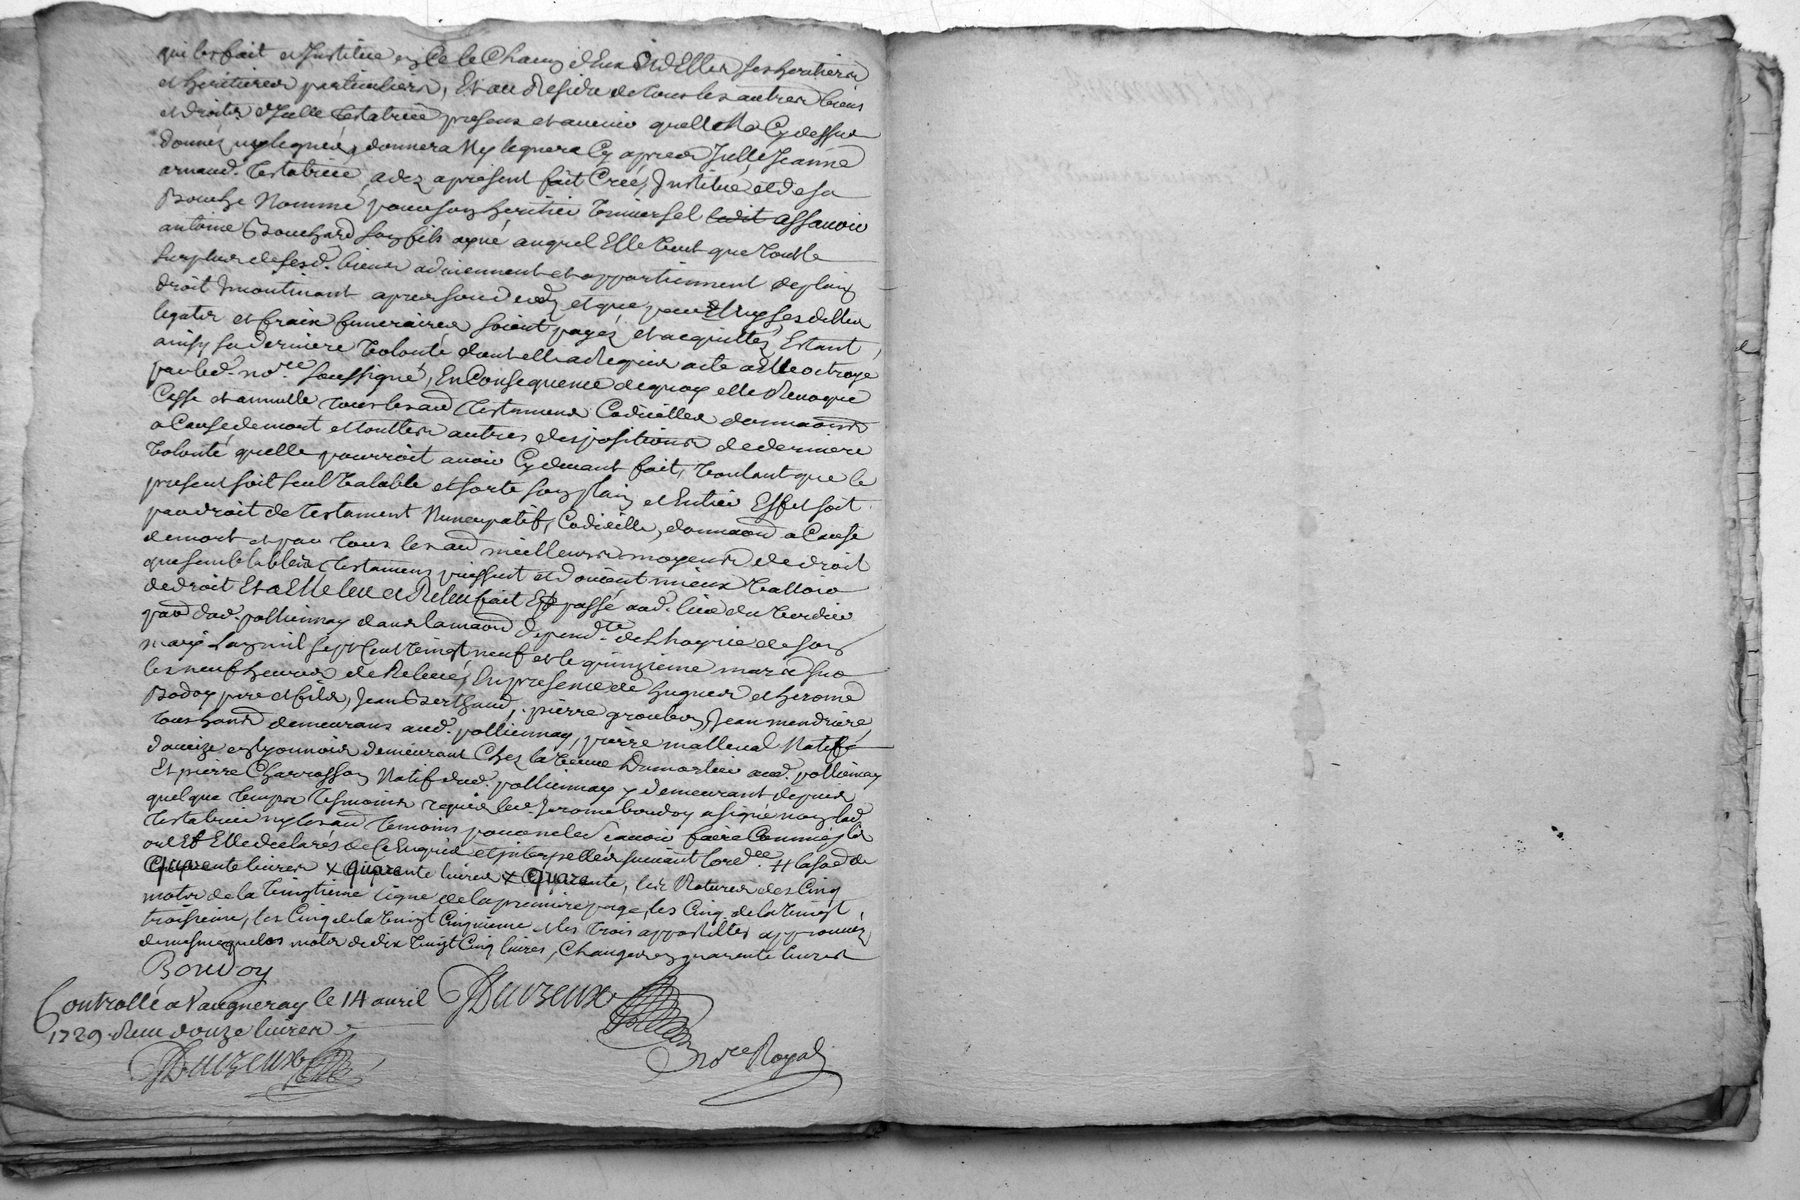 qui les fait et Institue en Ce le Chacun d'Eux et d'Elles ses heritiers
et heritieres particuliers, Et au Residu de tous les autres biens
et droits d'Icelle testatrice presens et avenir quelle N'a Cy dessus
donnés ny legués, donnera Ny leguera Cy apres Icelle Jeanne
arnaud testatrice adez apresent fait Créé, Institué et de sa
Bouche Nommé pour son heritier Universel assavoir
antoine Bouchard son fils ayné auquel Elle Veut que tout le
surplus de ses d. biens adviennent et appartiennent de plain
droit Incontinant apres son deces et que par luy ses dettes
legats et fraix funeraires soient payés et acquittés, Estant
ainsy sa derniere Volonté dont elle a Requis acte a Elle octroyé
par led. no.re soussigné, En Consequence de quoy elle Revoque
Casse et annulle tous les aud testamens Codicilles donnaons
a Cause de mort et touttes autres dispositions de derniere
Volonté quelle pourroit avoir Cy devant fait, Voulant que le
present soit seul Valable et sorte son plain et Entier Effet soit
par droit de testament Nuncupatif, Codicille, donnaon a Cause
de mort et par tous les aud meilleurs moyens de droit
que semblables testamens puissent et doivent mieux Valloir
de droit Et a Elle leu et Releu fait Et passé aud. lieu du Verdier
parr d'ad. pollionnay dans la maon depend.te de L'hoyrie de son
mary L'an mil sept Cent Vingt neuf et le quinzieme mars sur
les neuf heures de Relevé, En presence de hugues et herome
Bodoy pere et fils, Jean Berthaud, pierre groubon, Jean mendriere
tous hans demeurans aud. pollionnay, pierre malleval Natif
d'aveize en lyonnois demeurant Chez la Veuve Dumortier aud. pollionay
Et pierre Charrasson Natif dud. pollionnay y demeurant depuis
quelque temps tesmoins requis led. Jerome boudoy a signé non lad.
testatrice ny les aud temoins pour ne le sçavoir faire Comme ils
ont Et Elle declarés de Ce Enquis et interpellés suivant l'ord.ce # la so de
quarente livres x quarente livres x quarente, les Ratures des Cinq
mots de la Vingtieme ligne de la premiere page, les Cinq de la Vingt
troisieme, les Cinq de la Vingt Cinquieme et les trois appostilles approuvez
de mesme que les mots de dix Vingt Cinq livres, Changés en quarente livres
Boudoy
Controllé a Vaugneray le 14 avril
1729. Reçu douze livres
Duvreux
Duvreux
no.re Royal